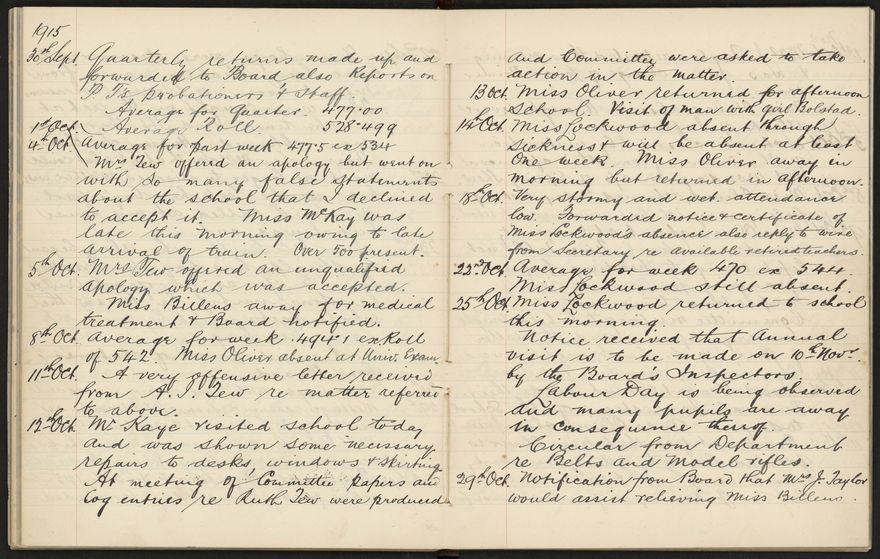 1915
30th Sept. Quarterly returns made up and
forwarded to Board also Reports on
P.T's probationers & staff.
Average for Quarter. 477.00
1st Oct. Average Roll. 528.499
4th Oct. Average for past week 477.5 ex 534
Mrs Tew offered an apology but went on
with so many false statements
about the school that I declined
to accept it. Miss McKay was
late this morning owing to late
arrival of train. Over 500 present.
5th Oct. Mrs Tew offered an unqualified
apology which was accepted.
Miss Billens away for medical
treatment & Board notified.
8th Oct. Average for week 494.1 ex Roll
of 542. Miss Oliver absent at Univ. Exam.
11th Oct. A very offensive letter received
from A. J. Tew re matter referred
to above.
12th Oct. Mr Kaye visited school today
and was shown some necessary
repairs to desks, windows & skirting.
At meeting of Committee papers and
log entries re Ruth Tew were produced
and Committee were asked to take
action in the matter.
13 Oct. Miss Oliver returned for afternoon
School. Visit of man with girl Bolstad.
14th Oct. Miss Lockwood absent through
Sickness & will be absent at least
One week. Miss Oliver away in
morning but returned in afternoon.
18th Oct. Very stormy and wet. attendance
low. Forwarded notice & certificate of
Miss Lockwood's absence also reply to wire
from Secretary re available retired teachers.
22nd Oct. Average for week 470 ex 544.
Miss Lockwood still absent.
25th Oct. Miss Lockwood returned to school
this morning.
Notice received that Annual
visit is to be made on 10th Novr
by the Board's Inspectors.
Labour Day is being observed
and many pupils are away
in consequence thereof.
Circular from Department
re Belts and Model rifles.
29th Oct. Notification from Board that Mrs J. Taylor
would assist relieving Miss Billens.